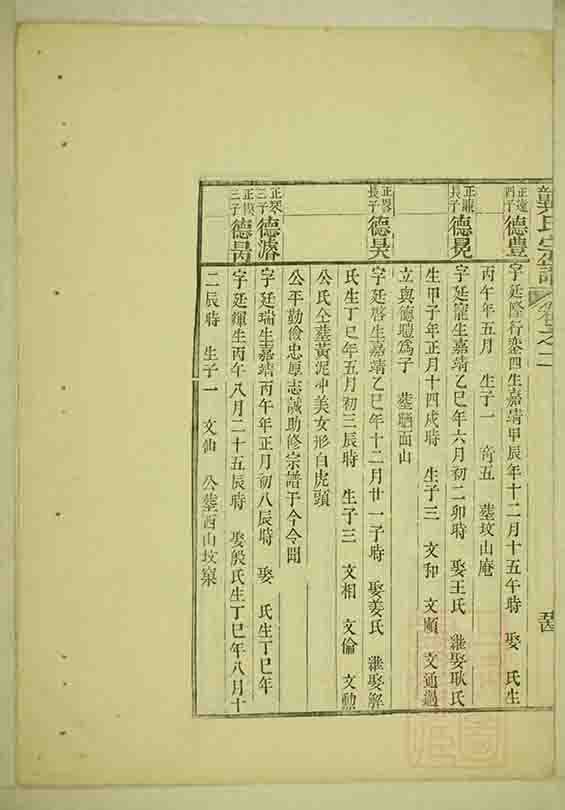 氏宗譜 卷之二
正遠四子 德豊 字廷隆行蛮四生嘉靖甲辰年十二月十五午時 娶 氏生
丙午年五月 生子一 奇五 塟坟山庵
正謙長子 德晃 字廷寵生嘉靖乙巳年六月初二卯時 娶王氏 進娶耿氏
生甲子年正月十四戌時 生子三 文 文順 文通過
立與德瑄爲子 塟晒面山
長子 德昊 字廷啓生嘉靖乙巳年十二月廿一子時 娶姜氏 進娶解
氏生丁巳年五月初三辰時 生子三 文相 文倫 文勲
公氏仝塟黃泥冲美女形白虎頭
公平勤儉忠厚志誠助修宗譜于今令聞
三子 德濬 字廷瑞生嘉靖丙午年正月初八辰時 娶 氏生丁巳年
三子 德 字廷輝生丙午八月二十五辰時 娶殷氏生丁巳年八月十
二辰時 生子一 文仙 公塟西山坟窠